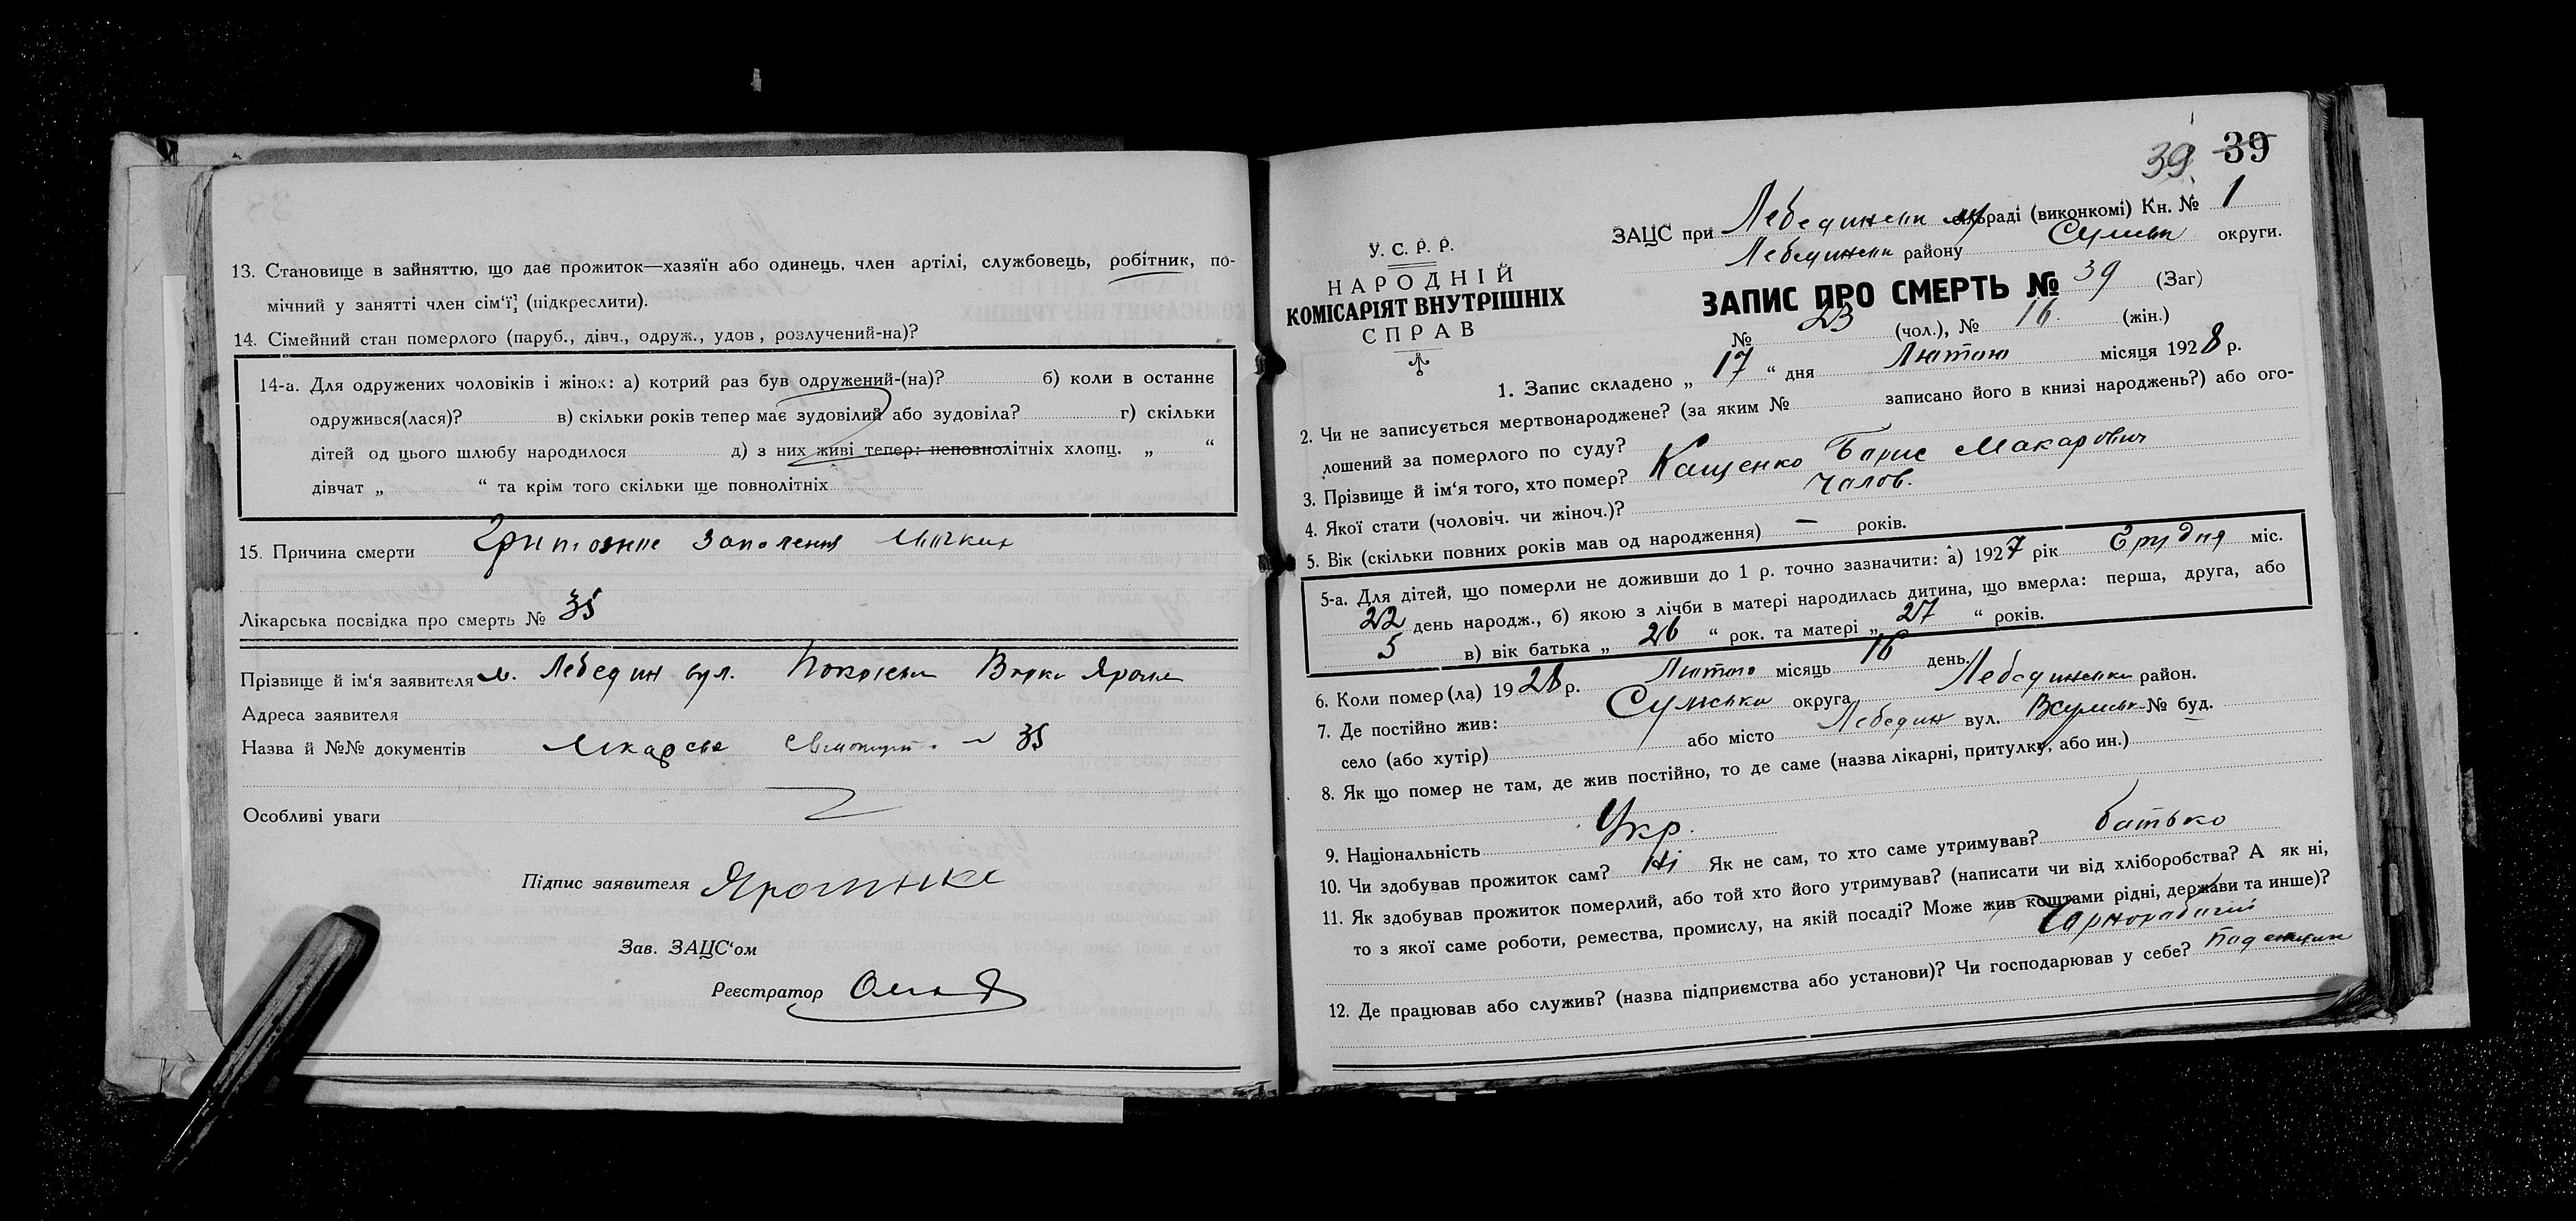 13. Становище в зайняттю, що дає прожиток—хазяїн або одинець, член артілі, службовець, робітник, по-
мічний у занятті член сім'ї; (підкреслити).
14. Сімейний стан померлого (паруб., дівч., одруж., удов., розлучений-на)?
14-а. Для одружених чоловіків і жінок: а) котрий раз був одружений-(на)? б) коли в останнє
одружився(лася)? в) скільки років тепер має зудовілий або зудовіла? г) скільки
дітей од цього шлюбу народилося д) з них живі тепер: неповнолітніх хлопц. „ “
дівчат „ “ та крім того скільки ще повнолітніх
15. Причина смерти запалення
Лікарська посвідка про смерть № 35
Прізвище й ім'я заявителя м. Лебедин вул.
Адреса заявителя
Назва й №№ документів 35
Особливі уваги
Підпис заявителя
Зав. ЗАЦС'ом
Реєстратор
39 39
ЗАЦС при Лебединськ сільраді (виконкомі) Кн. № 1
Лебединськ району Сумськ округи.
У. С. Р. Р.
НАРОДНІЙ
КОМІСАРІЯТ ВНУТРІШНІХ
СПРАВ
ЗАПИС ПРО СМЕРТЬ № 39 (Заг)
№ 23 (чол.), № 16 (жін.)
1. Запис складено „ 17 “ дня Лютого місяця 1928 р.
2. Чи не записується мертвонароджене? (за яким № записано його в книзі народжень?) або ого-
лошений за померлого по суду?
3. Прізвище й ім'я того, хто помер? Кащенко Борис Макарович
4. Якої стати (чоловіч. чи жіноч.)? Чолов.
5. Вік (скільки повних років мав од народження) — років.
5-а. Для дітей, що померли не доживши до 1 р. точно зазначити: а) 1927 рік Грудня міс.
22 день народж., б) якою з лічби в матері народилась дитина, що вмерла: перша, друга, або
5 в) вік батька „ 26 “ рок. та матері „ 27 “ років.
6. Коли помер(ла) 1928 р. Лютого місяць 16 день.
7. Де постійно жив: Сумська округа Лебединськ район.
село (або хутір) або місто Лебедин вул. № буд.
8. Як що помер не там, де жив постійно, то де саме (назва лікарні, притулку, або ин.)
9. Національність Укр.
10. Чи здобував прожиток сам? Ні Як не сам, то хто саме утримував? батько
11. Як здобував прожиток померлий, або той хто його утримував? (написати чи від хліборобства? А як ні,
то з якої саме роботи, ремества, промислу, на якій посаді? Може жив коштами рідні, держави та инше)?
Чорноробочий
12. Де працював або служив? (назва підприємства або установи)? Чи господарював у себе?